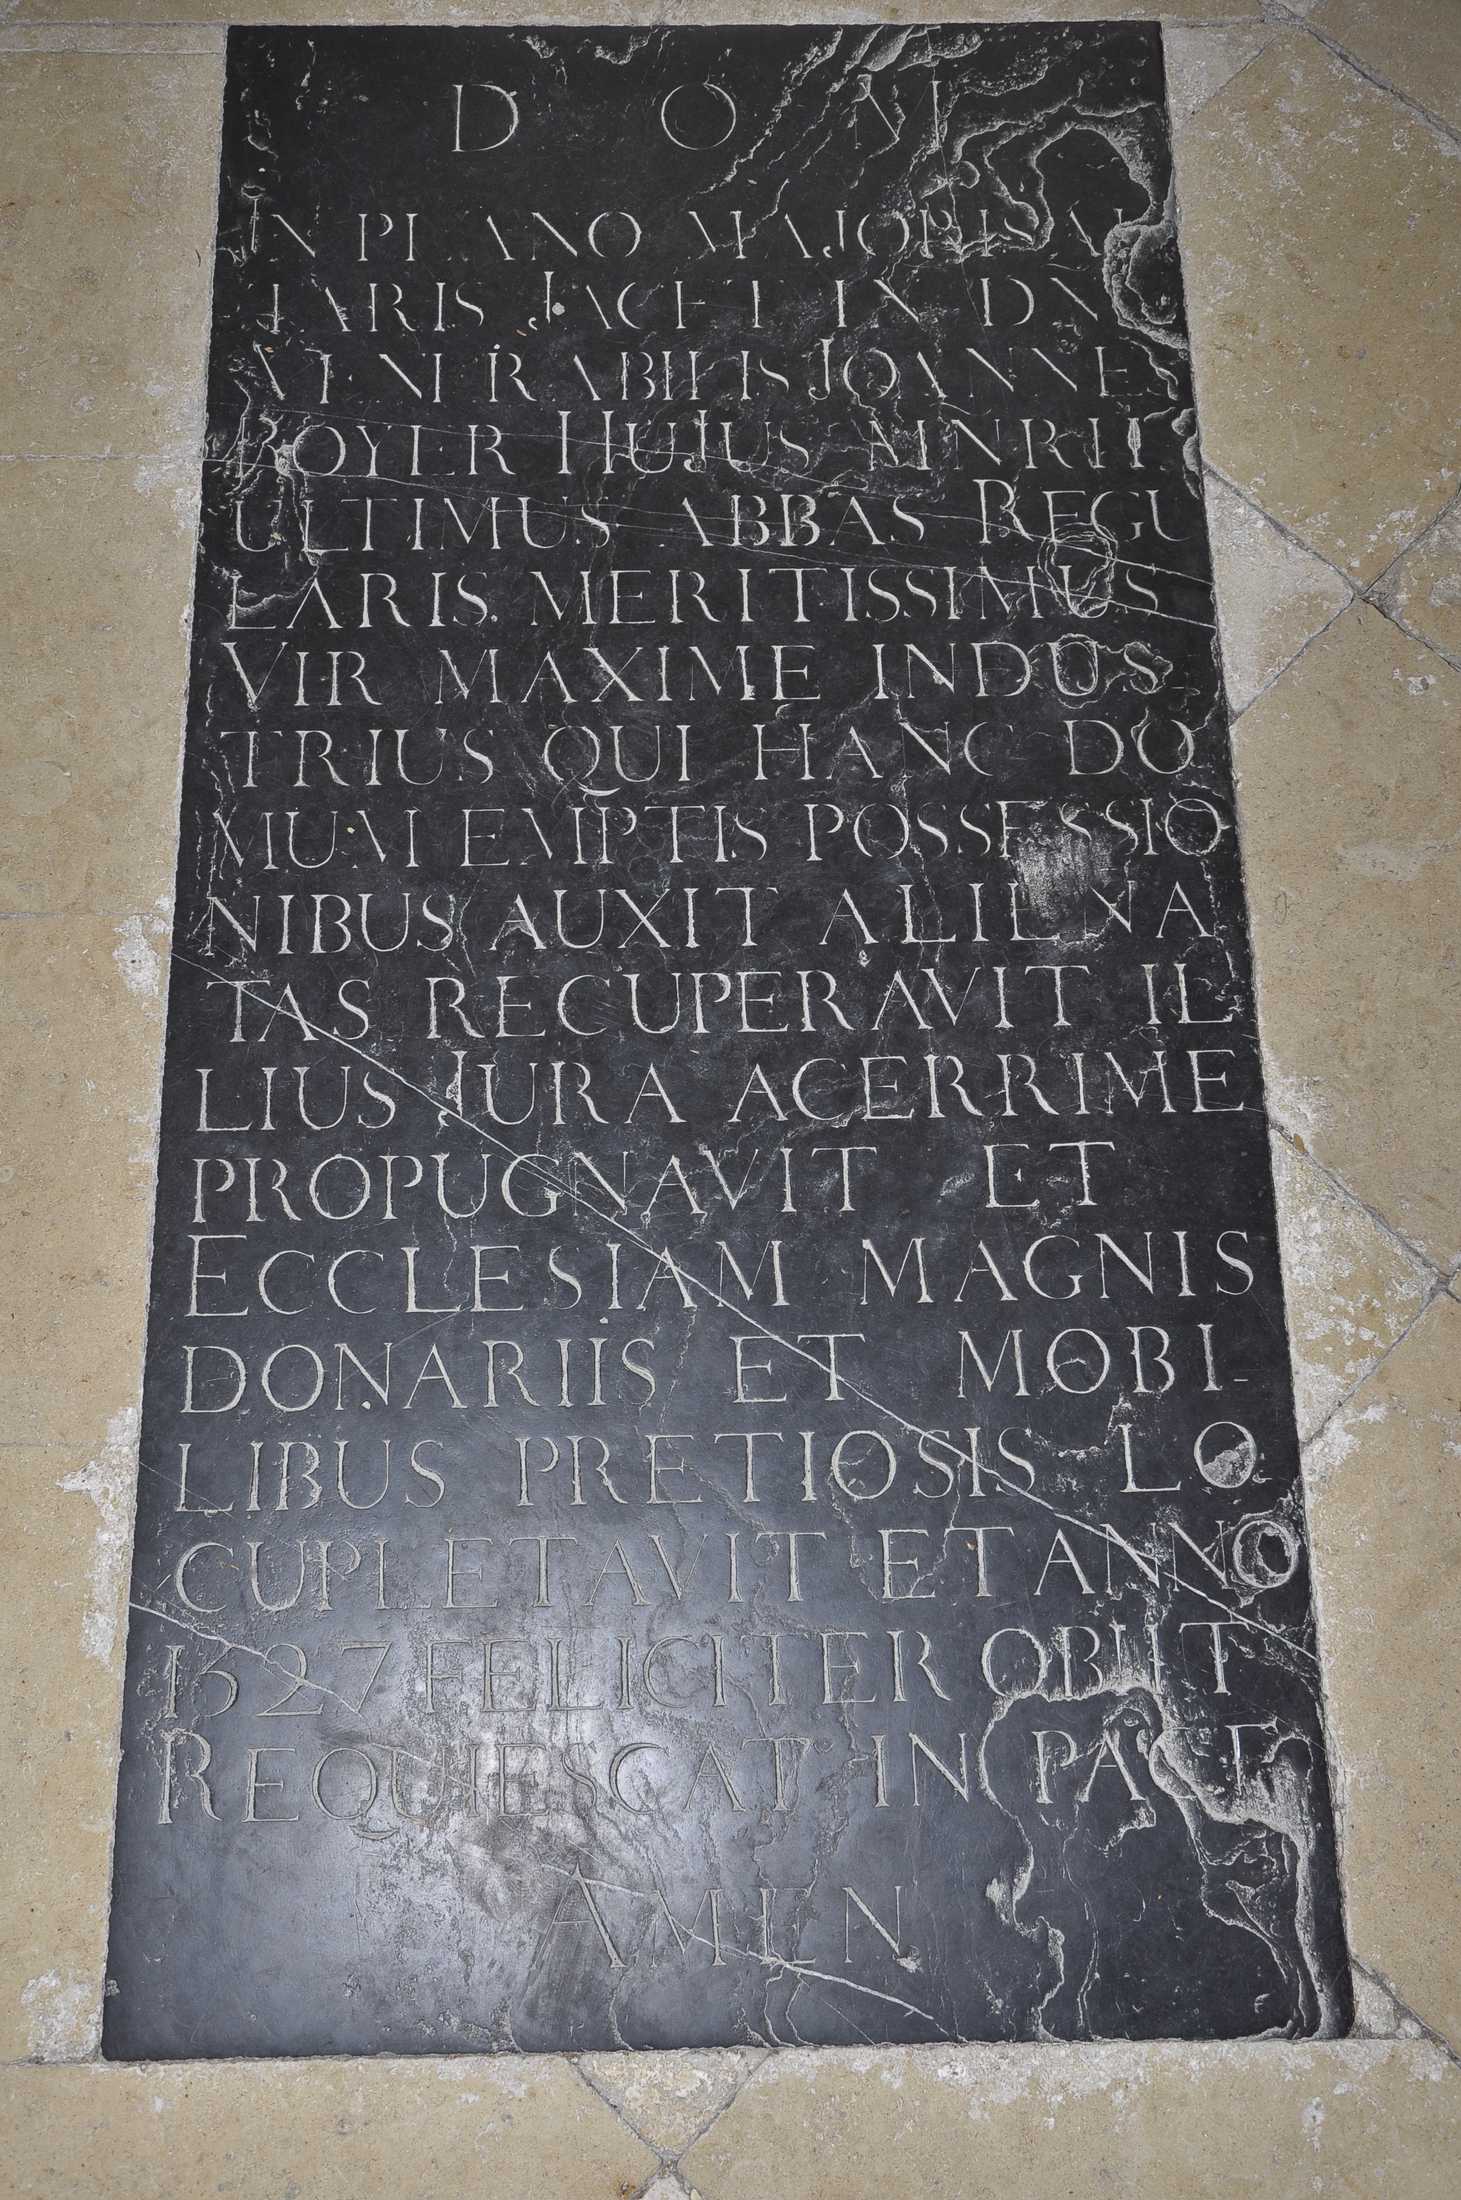 D O M
IN PLANO MAJORIS AL
TARIS JACET IN DNO
VENERABILIS JOANNES
BOYER HUJUS MNRII
ULTIMUS ABBAS REGU
LARIS MERITISSIMUS
VIR MAXIME INDUS-
TRIUS QUI HANC DO
MUM EMPTIS POSSESSIO
NIBUS AUXIT ALIENA
TAS RECUPERAVIT IL
LIUS JURA ACERRIME
PROPUGNAVIT ET
ECCLESIAM MAGNIS
DONARIIS ET MOBI-
LIBUS PRETIOSIS LO
CUPLETAVIT ET ANNO
1527 FELICITER OBIIT
REQUIESCAT IN PACE
AMEN